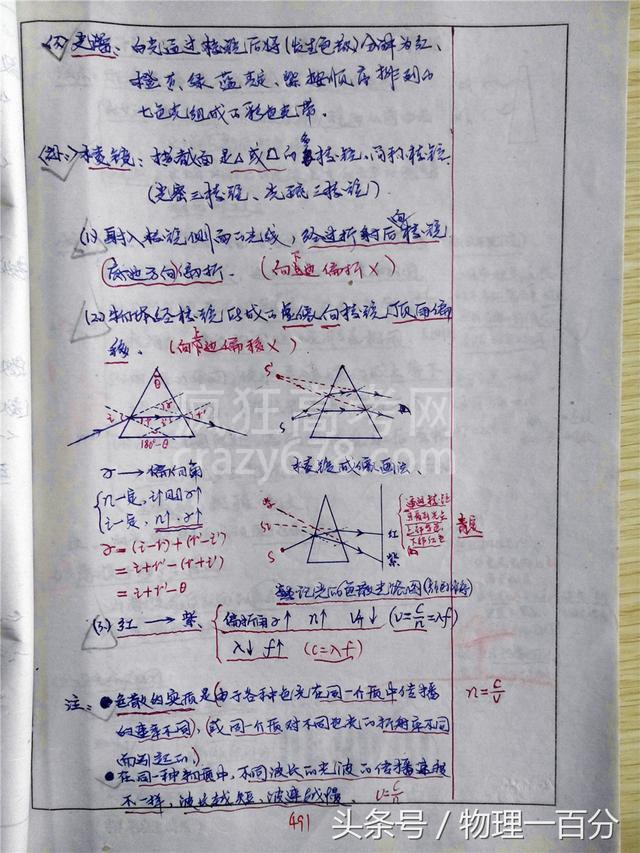 光谱：白光通过棱镜后将(发生色散)分解为红、
橙、黄、绿、蓝、靛、紫按顺序排列的
七色光组成的彩色光带.
棱镜：横截面是△或
的多棱镜.简称棱镜.
(光密三棱镜、光疏三棱镜)
(1)射入棱镜侧面的光线，经过折射后向棱镜
底边方向偏折. (向下边偏折×)
(2)物体经棱镜所成的虚像向棱镜顶角偏
移. (向上边偏移×)
θ
i
r
r'
i'
180°-θ
S'
S
γ→偏向角
棱镜成像画法、
n一定, i↑ γ↑
i一定, n↑ γ↑
γ=(i-r)+(r'-i')
=i+r'-(r+i')
=i+r'-θ
S
红
紫
通过棱镜
上部
下部红色
(3)红→紫、
偏折角γ↑ n↑ v↓ (v=c/n=λf)
λ↓ f↑ (c=λf)
注：●色散的实质是(由于各种色光在同一介质中传播
的速率不同), (或同一介质对不同色光的折射率不同
而引起的,)
n=c/v
●在同一种物质中,不同波长的光波的传播速度
不一样,波长越短、波速越慢. v=c/n
491
疯狂高考网
crazy678.com
头条号／物理一百分